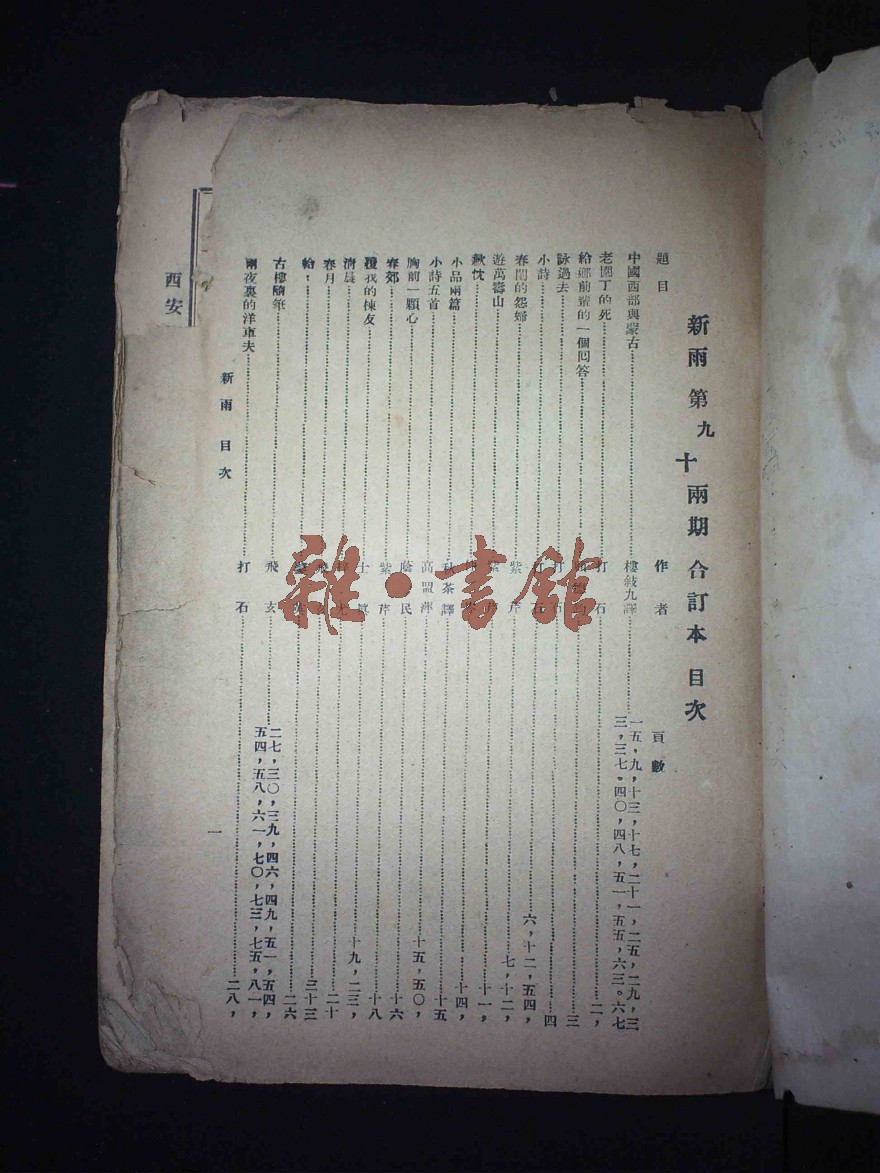 新雨 第九十兩期 合訂本 目次
題目 作者 頁數
中國西部與蒙古 樓㪚九譯 一五,九,十三,十七,二十一,二五,二九,三三,三七。四〇,四八,五一,五五,六三。六七
老園丁的死 打石 二,
給鄉前輩的一個回答 三
詠過去 打石 四
小詩 打石
春閨的怨婦 紫芹 六,十二,五四,
遊萬壽山 紫 七,十二,
歉忱 十一,
小品兩篇 秋茶譯 十四,
小詩五首 高盟萍 十五
胸前一顆心 蔭民 十五,五〇,
春郊 紫芹 十六
覆我的棟友 士真 十八
清晨 十九,二三,
春月 飛玄 二十
給 三十三
古樓隨筆 飛玄 二六
二七,三〇,三九,四六,四九,五一,五四,五四,五八,六一,七〇,七三,七五,八一,
雨夜裏的洋車夫 打石 二八,
新雨目次
一
西安
雜·書館